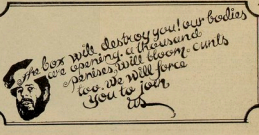 The box will destroy you! our bodies
are opening. a thousand
penises will bloom. cunts
too. we will force
you to join
us